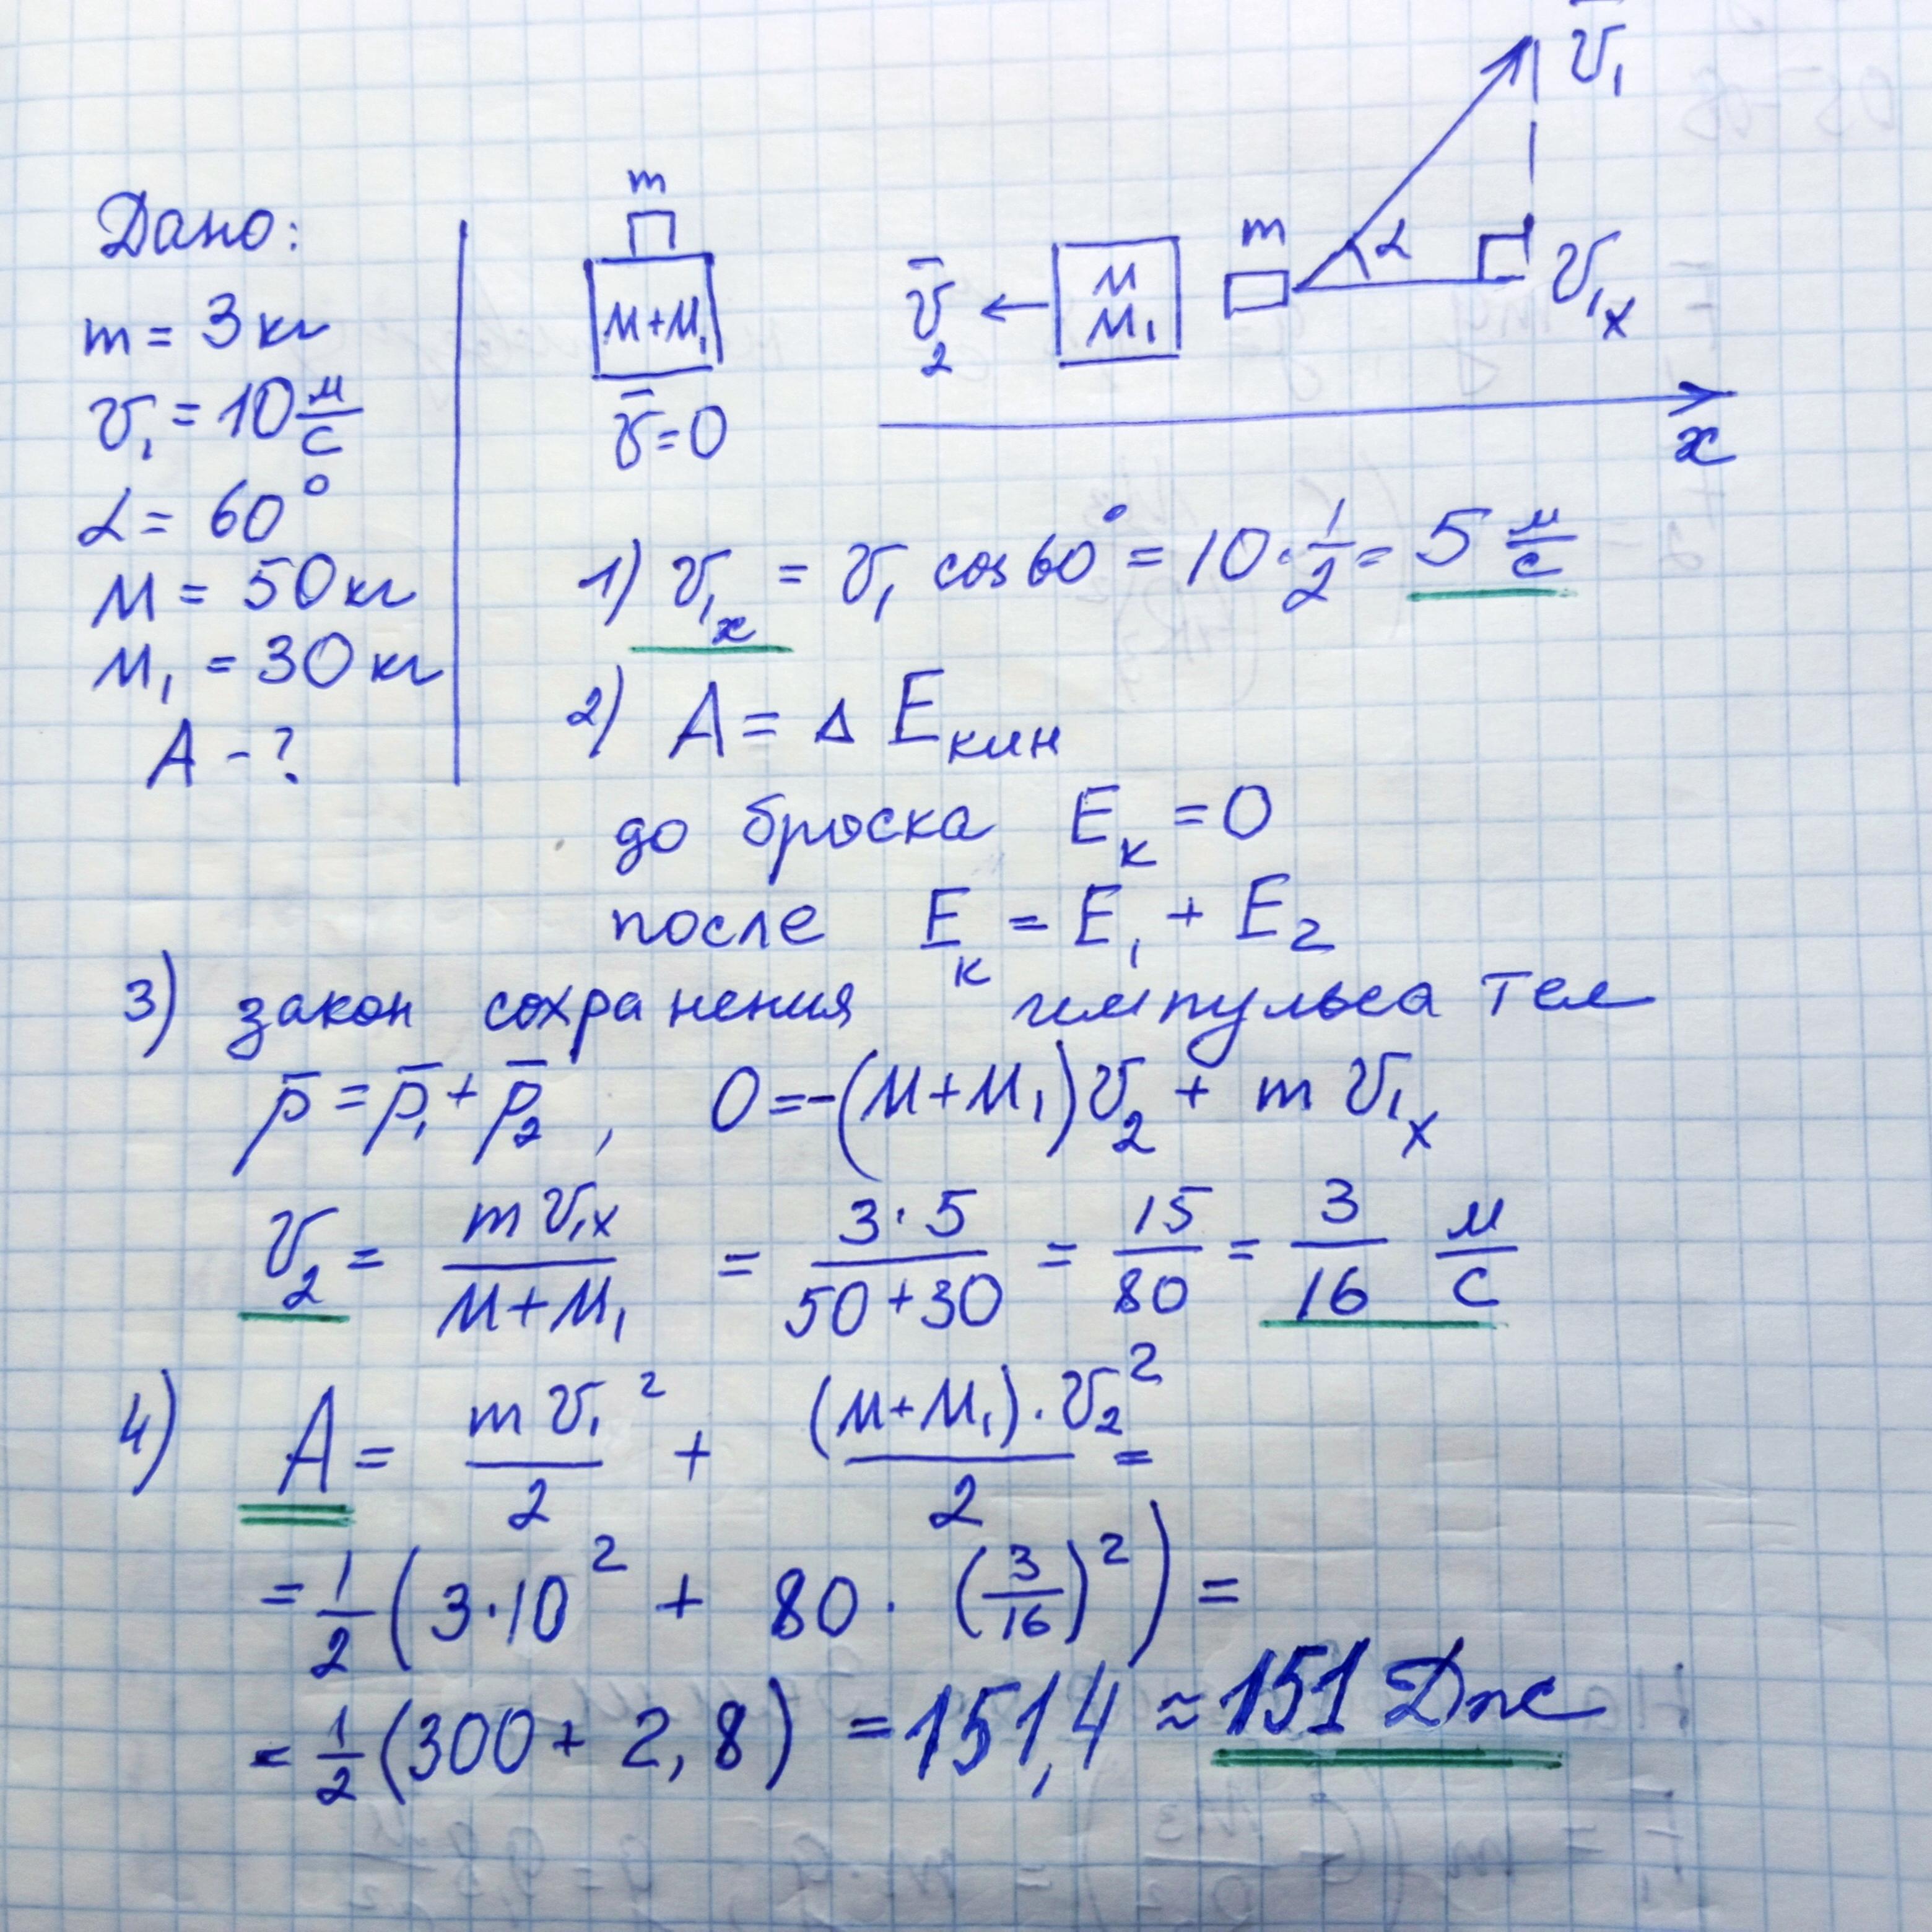 Дано:
m = 3 кг
v₁ = 10 м/с
α = 60°
M = 50 кг
M₁ = 30 кг
A - ?
m
M+M₁
v̄=0
v̄₂
M
M₁
m
α
v̄₁
v₁ₓ
x
1) v₁ₓ = v₁ cos 60° = 10 · 1/2 = 5 м/с
2) A = Δ Eкин
до броска Eк = 0
после Eк = E₁ + E₂
3) закон сохранения импульса тел
p̄ = p̄₁ + p̄₂ , 0 = -(M+M₁)v₂ + m v₁ₓ
v₂ = m v₁ₓ / M+M₁ = 3·5 / 50+30 = 15/80 = 3/16 м/с
4) A = m v₁²/2 + (M+M₁)·v₂²/2 =
= 1/2 (3·10² + 80 · (3/16)²) =
= 1/2 (300 + 2,8) = 151,4 ≈ 151 Дж